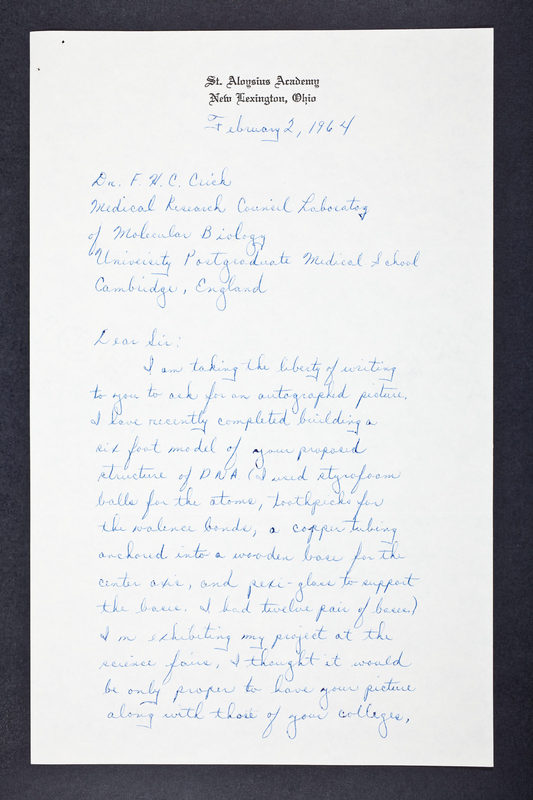 St. Aloysius Academy
New Lexington, Ohio
February 2, 1964
Dr. F. H. C. Crick
Medical Research Council Laboratoy
of Molecular Biology
University Postgraduate Medical School
Cambridge, England
Dear Sir:
I am taking the liberty of writing
to you to ask for an autographed picture.
I have recently completed building a
six foot model of your proposed
structure of DNA (I used styrofoam
balls for the atoms, toothpicks for
the valence bonds, a copper tubing
anchored into a wooden base for the
center axis, and pexi-glass to support
the bases. I had twelve pair of bases.)
I'm exhibiting my project at the
science fairs. I thought it would
be only proper to have your picture
along with those of your colleges,